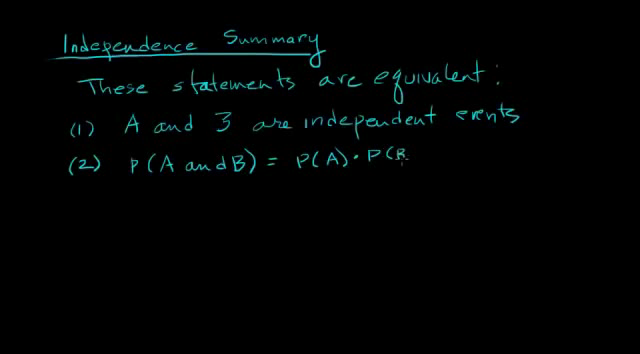 Independence Summary
These statements are equivalent:
(1) A and 3 are independent events
(2) P(A and B) = P(A) · P(B